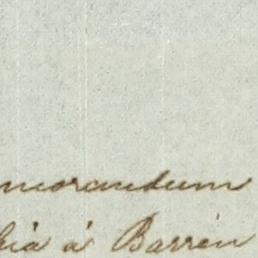 morandum
hia á Barren